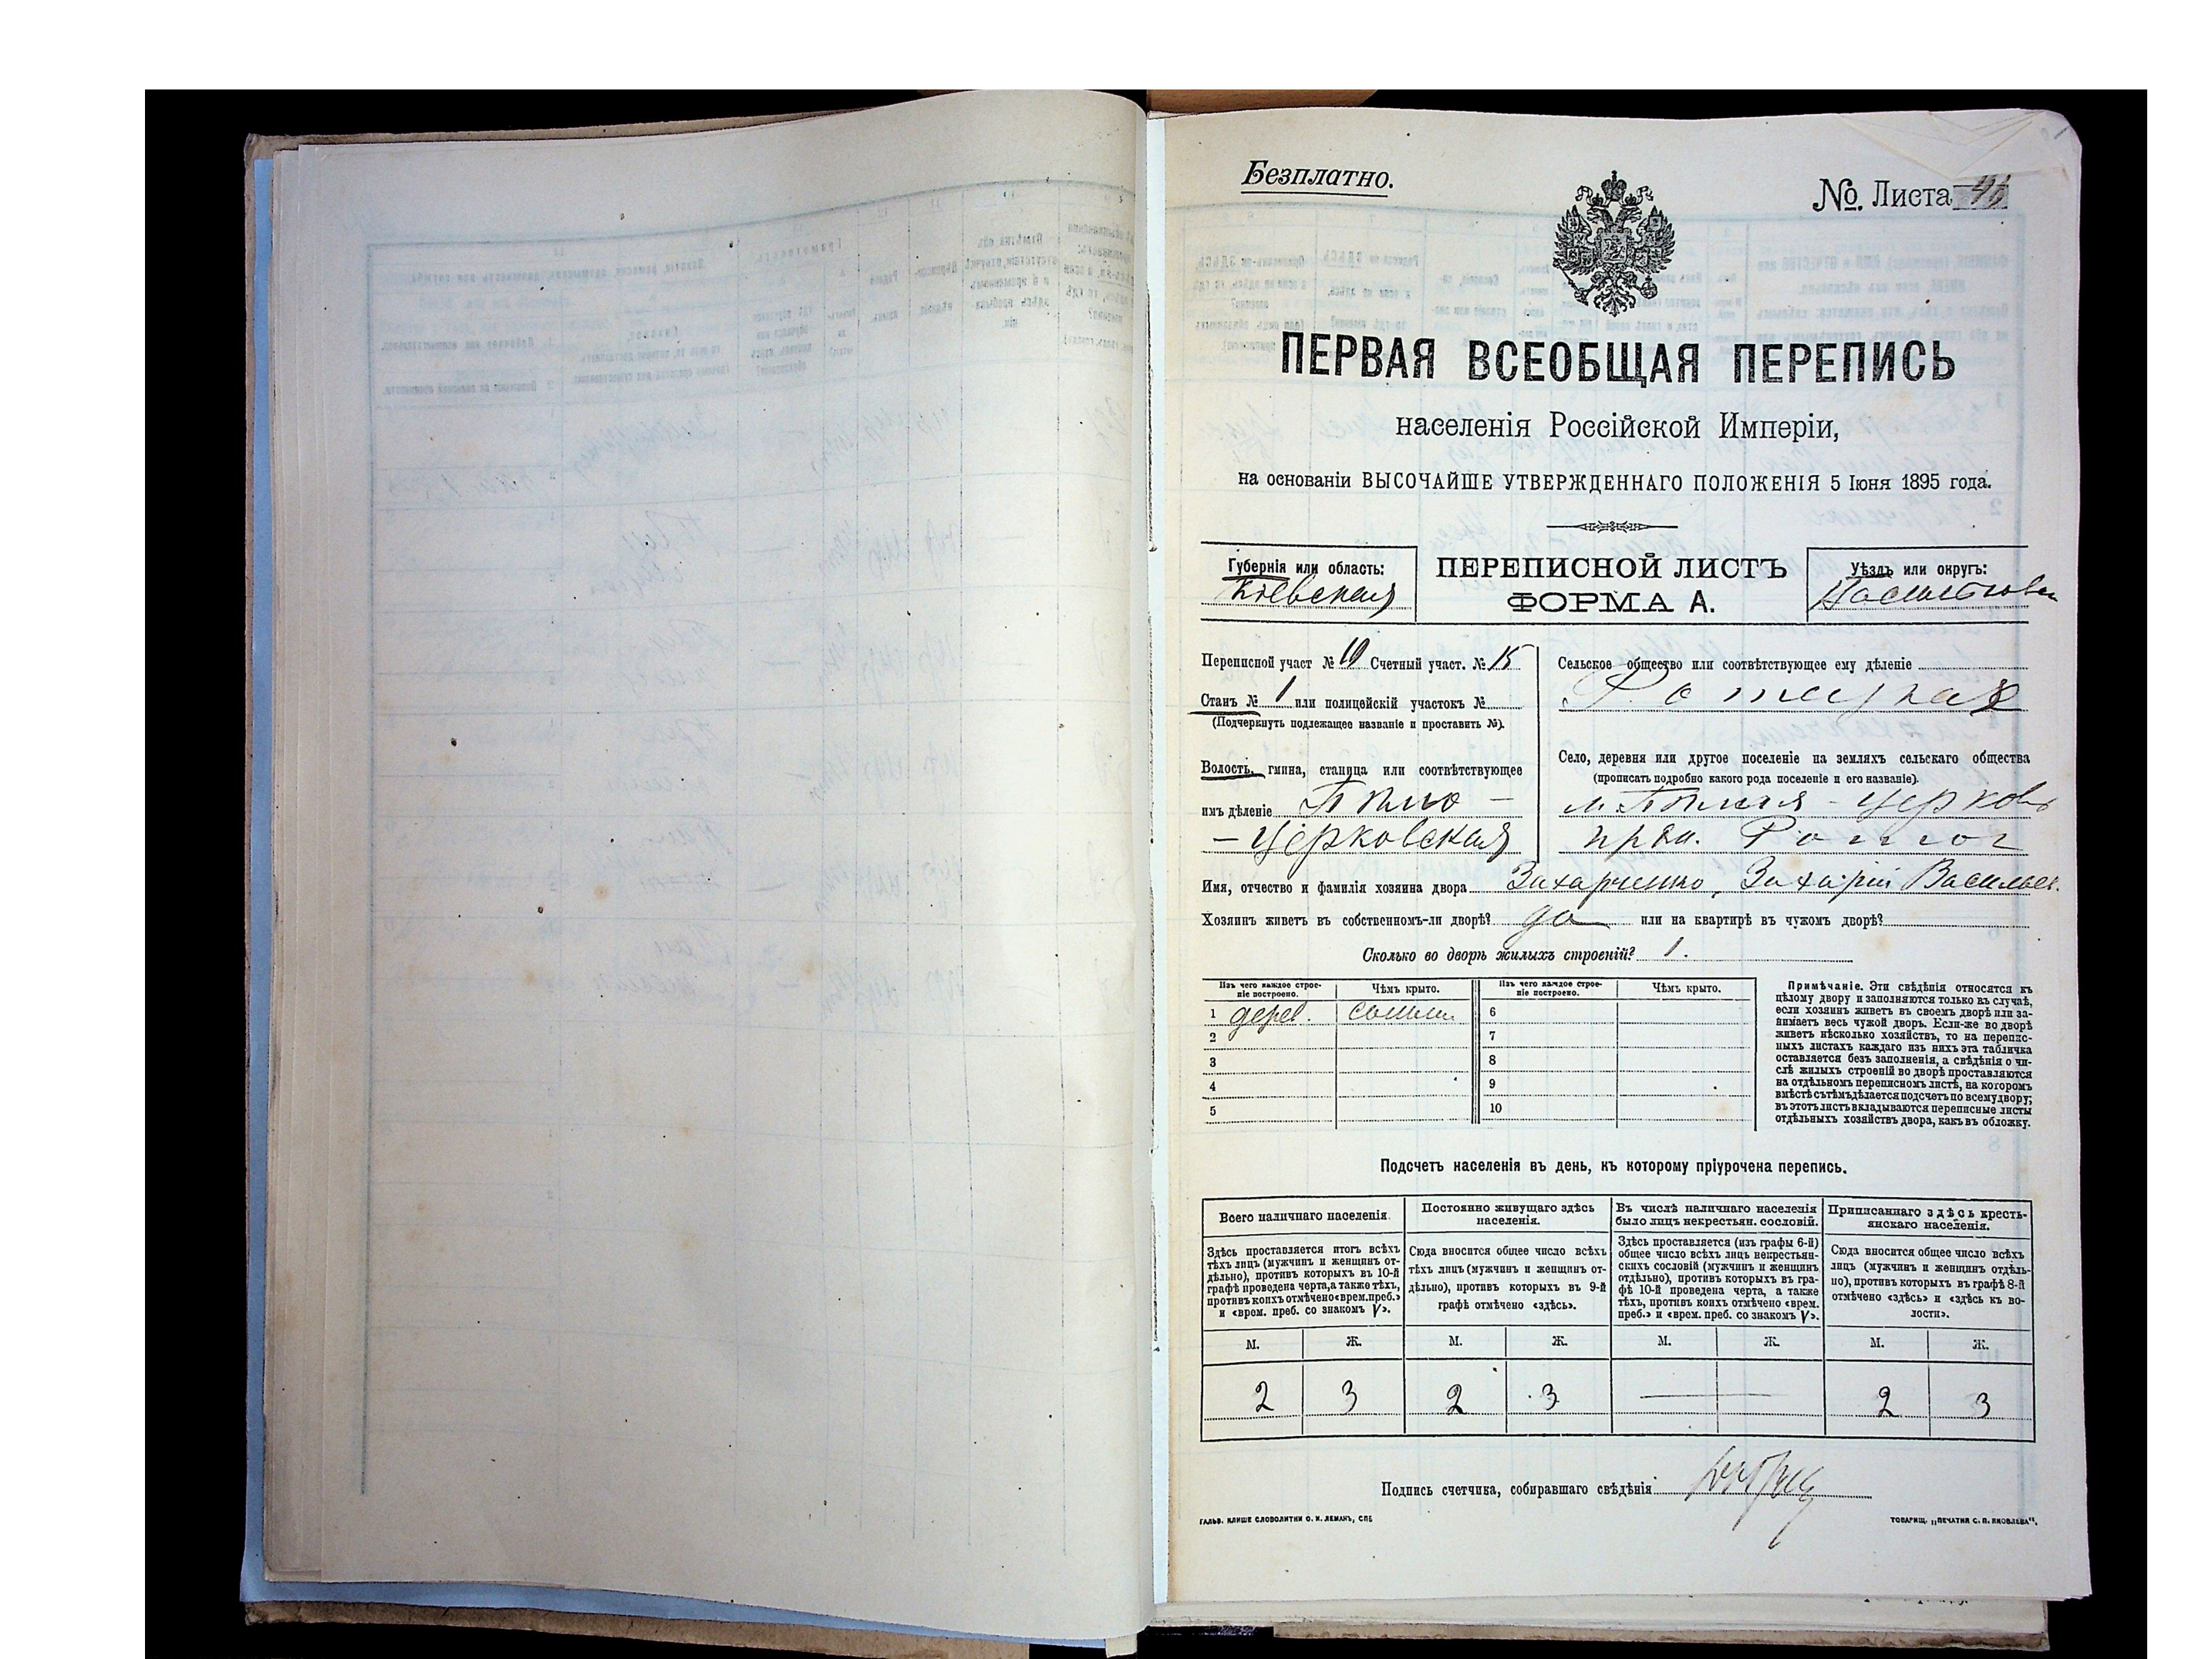 Безплатно.
№ Листа 46
ПЕРВАЯ ВСЕОБЩАЯ ПЕРЕПИСЬ
населенія Россійской Имперіи,
на основаніи ВЫСОЧАЙШЕ УТВЕРЖДЕННАГО ПОЛОЖЕНІЯ 5 Іюня 1895 года.
Губернія или область:
Кіевская
ПЕРЕПИСНОЙ ЛИСТЪ
ФОРМА А.
Уѣздъ или округъ:
Переписной участ № 19 Счетный участ. № 15
Станъ № 1 или полицейскій участокъ №
(Подчеркнуть подлежащее названіе и проставить №).
Волость, гмина, станица или соотвѣтствующее
имъ дѣленіе Бѣло-
-Церковская
Сельское общество или соотвѣтствующее ему дѣленіе
Село, деревня или другое поселеніе на земляхъ сельскаго общества
(прописать подробно какого рода поселеніе и его названіе).
м. Бѣлая-Церковь
Имя, отчество и фамилія хозяина двора Захарченко, Захарій Васильев.
Хозяинъ живетъ въ собственномъ-ли дворѣ? да или на квартирѣ въ чужомъ дворѣ?
Сколько во дворѣ жилыхъ строеній? 1.
Изъ чего каждое строе-
ніе построено.
Чѣмъ крыто.
Изъ чего каждое строе-
ніе построено.
Чѣмъ крыто.
1 дерев. солом. 6
2 7
3 8
4 9
5 10
Примѣчаніе. Эти свѣдѣнія относятся къ
цѣлому двору и заполняются только въ случаѣ,
если хозяинъ живетъ въ своемъ дворѣ или за-
нимаетъ весь чужой дворъ. Если-же во дворѣ
живетъ нѣсколько хозяйствъ, то на перепис-
ныхъ листахъ каждаго изъ нихъ эта табличка
оставляется безъ заполненія, а свѣдѣнія о чи-
слѣ жилыхъ строеній во дворѣ проставляются
на отдѣльномъ переписномъ листѣ, на которомъ
вмѣстѣ съ тѣмъ дѣлается подсчетъ по всему двору;
въ этотъ листъ вкладываются переписные листы
отдѣльныхъ хозяйствъ двора, какъ въ обложку.
Подсчетъ населенія въ день, къ которому пріурочена перепись.
Всего наличнаго населенія.
Здѣсь проставляется итогъ всѣхъ
тѣхъ лицъ (мужчинъ и женщинъ от-
дѣльно), противъ которыхъ въ 10-й
графѣ проведена черта, а также тѣхъ,
противъ коихъ отмѣчено «врем. преб.»
и «врем. преб. со знакомъ V».
Постоянно живущаго здѣсь
населенія.
Сюда вносится общее число всѣхъ
тѣхъ лицъ (мужчинъ и женщинъ от-
дѣльно), противъ которыхъ въ 9-й
графѣ отмѣчено «здѣсь».
Въ числѣ наличнаго населенія
было лицъ некрестьян. сословій.
Здѣсь проставляется (изъ графы 6-й)
общее число всѣхъ лицъ некрестьян-
скихъ сословій (мужчинъ и женщинъ
отдѣльно), противъ которыхъ въ гра-
фѣ 10-й проведена черта, а также
тѣхъ, противъ коихъ отмѣчено «врем.
преб.» и «врем. преб. со знакомъ V».
Приписаннаго здѣсь кресть-
янскаго населенія.
Сюда вносится общее число всѣхъ
лицъ (мужчинъ и женщинъ отдѣль-
но), противъ которыхъ въ графѣ 8-й
отмѣчено «здѣсь» и «здѣсь къ во-
лости».
М. Ж. М. Ж. М. Ж. М. Ж.
2 3 2 3 — 2 3
Подпись счетчика, собиравшаго свѣдѣнія
ГАЛЬВ. КЛИШЕ СЛОВОЛИТНИ О. И. ЛЕМАНЪ, СПБ
ТОВАРИЩ. „ПЕЧАТНЯ С. П. ЯКОВЛЕВА“.